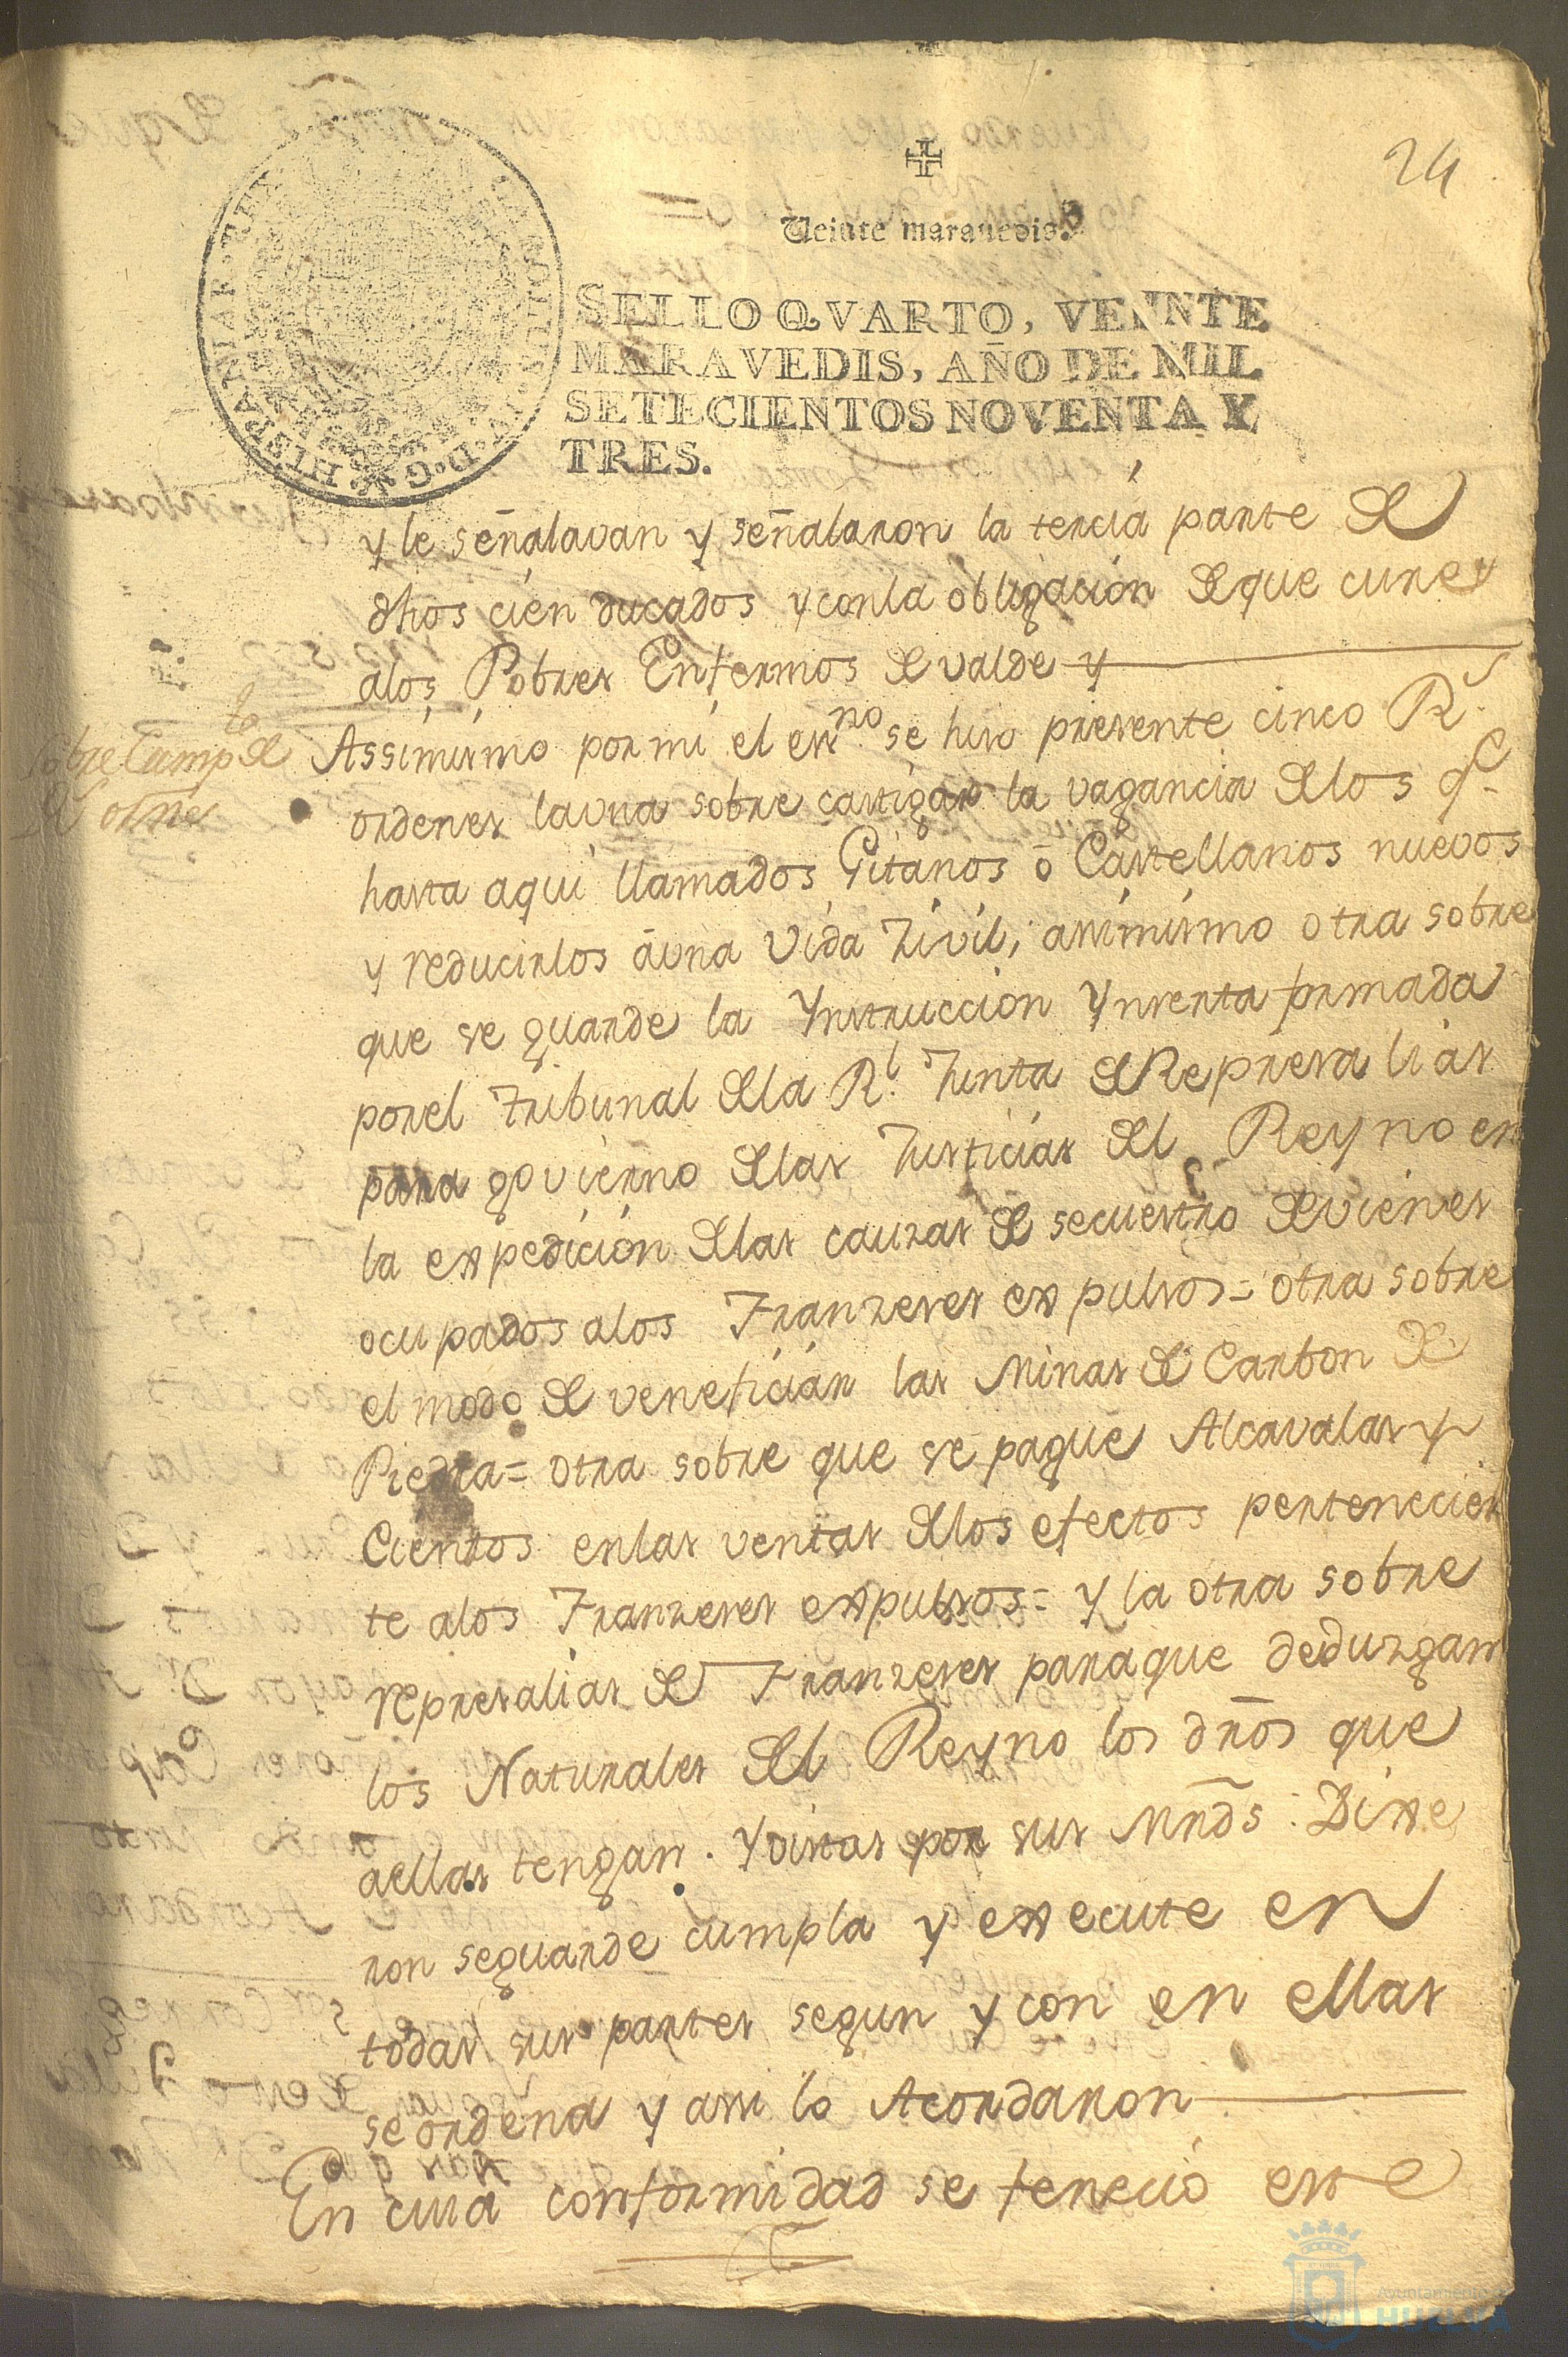 24
Veinte maravedis.
SELLO QVARTO, VEINTE
MARAVEDIS, AÑO DE MIL
SETECIENTOS NOVENTA Y
TRES.
y le señalavan y señalaron la tercia parte de
dhos cien ducados y con la obligacion de que cure
alos Pobres Enfermos de valde y
Sobre Cump.to de
R.s ornes
Assimismo por mi el essno. se hiso presente cinco R.s
ordenes la una sobre castigar la vagancia delos q.e
hasta aqui llamados Gitanos ó Castellanos nuevos
y reducirlos á una Vida Zivil, assimismo otra sobre
que se guarde la Ynstruccion Ynserta formada
por el Tribunal dela R.l Junta de Represalias
para govierno delas Justicias del Reyno en
la expedicion delas cauzas de secuestro de vienes
ocupados alos Franzeses expulsos = otra sobre
el modo de veneficiar las Minas de Carbon de
Piedra = otra sobre que se pague Alcavalas y
Cientos en las ventas delos efectos pertenecien
te alos Franzeses expulsos = y la otra sobre
represalias de Franzeses para que deduzgan
los Naturales del Reyno los dros que
aellas tengan. Y vistas por sus Mrds: Dixe
ron se guarde cumpla y execute en
todas sus partes segun y con en ellas
se ordena y assi lo Acordaron
En cuia conformidad se fenecio este
Ayuntamiento
HUELVA